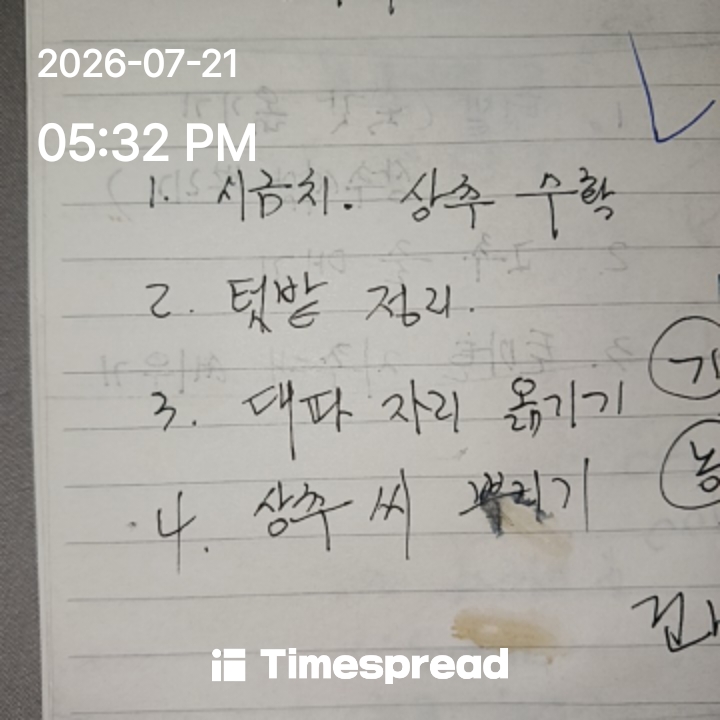 2026-07-21
05:32 PM
1. 시금치. 상추 수확
2. 텃밭 정리.
3. 대파 자리 옮기기
4. 상추 씨 뿌리기
Timespread